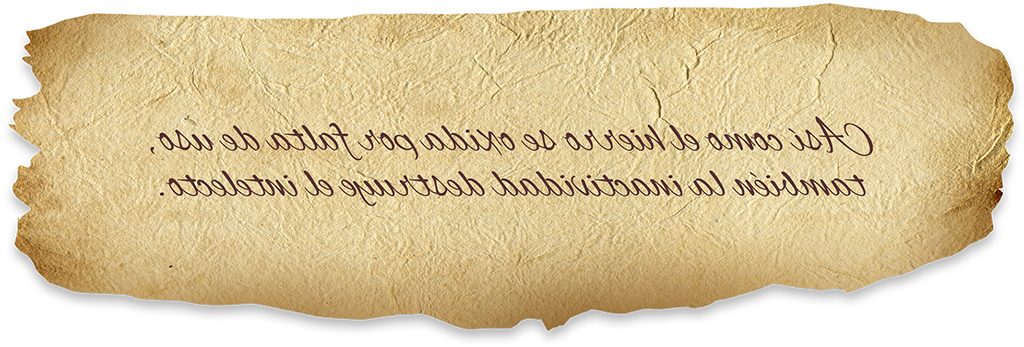 Así como el hierro se oxida por falta de uso,
también la inactividad destruye el intelecto.